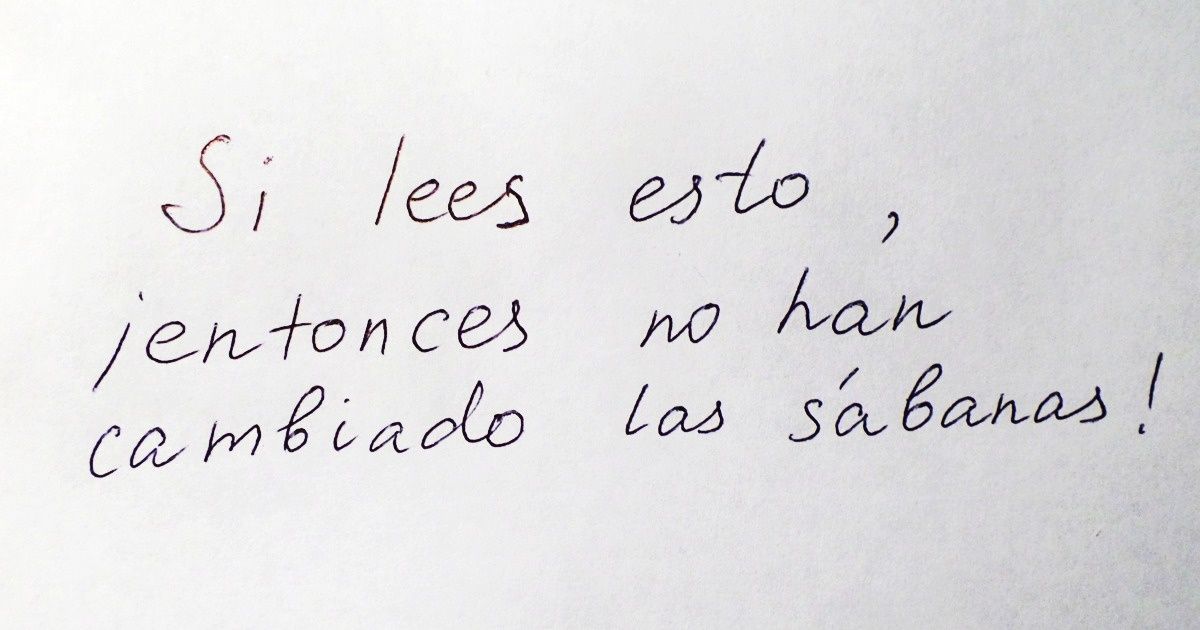 Si lees esto,
¡entonces no han
cambiado las sábanas!